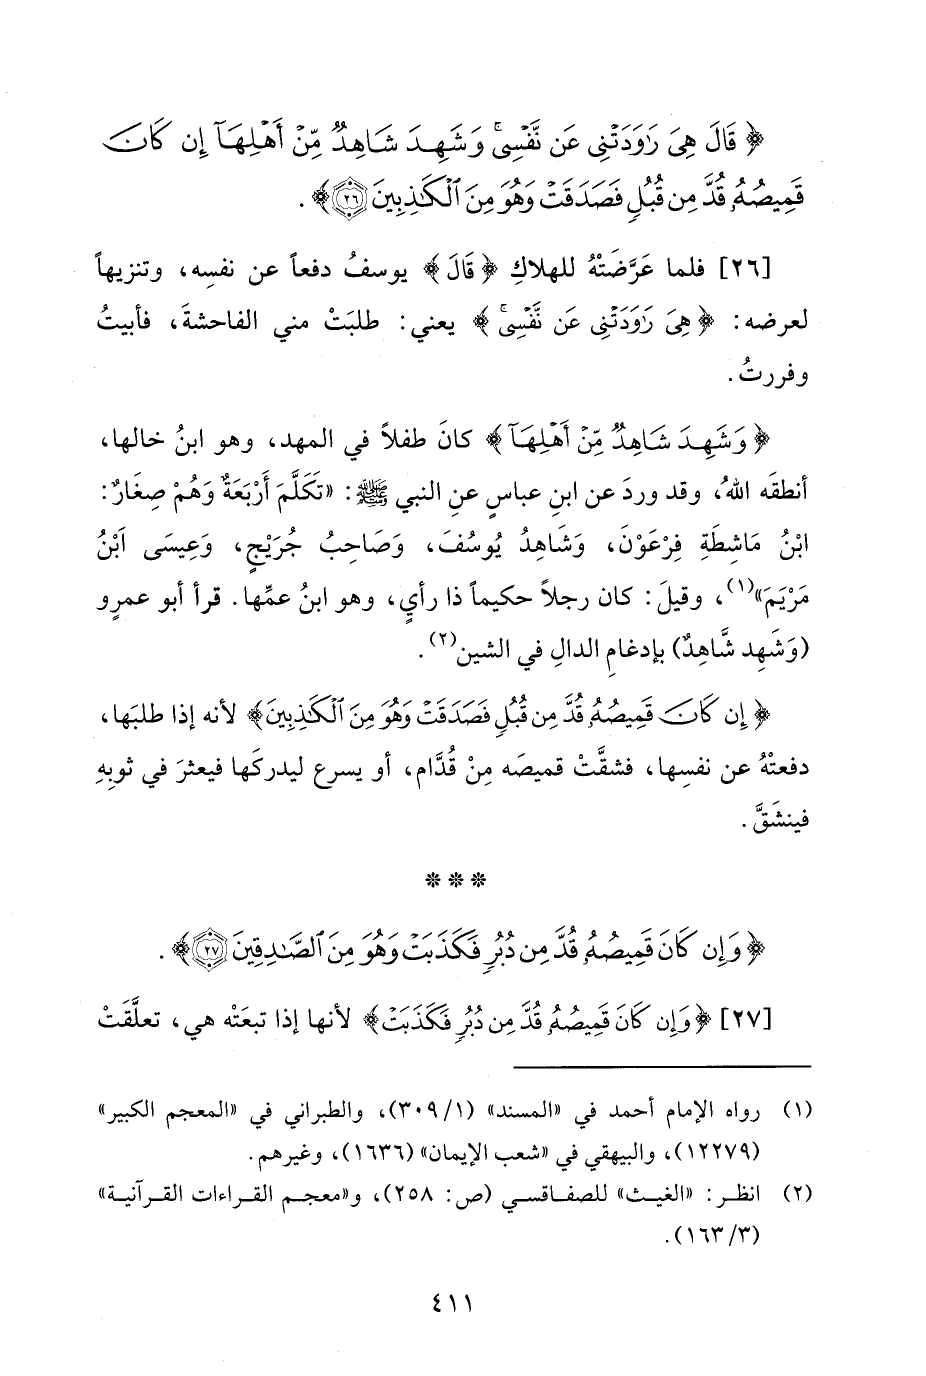 ﴿ قَالَ هِىَ رَٰوَدَتْنِى عَن نَّفْسِىۚ وَشَهِدَ شَاهِدٌ مِّنْ أَهْلِهَآ إِن كَانَ
قَمِيصُهُۥ قُدَّ مِن قُبُلٍ فَصَدَقَتْ وَهُوَ مِنَ ٱلْكَٰذِبِينَ ٢٦﴾ .
[٢٦] فلما عَرَّضَتْهُ للهلاكِ ﴿ قَالَ ﴾ يوسفُ دفعاً عن نفسِه، وتنزيهاً
لعرضه: ﴿ هِىَ رَٰوَدَتْنِى عَن نَّفْسِىۚ ﴾ يعني: طلبَتْ مني الفاحشةَ، فأبيتُ
وفررتُ.
﴿ وَشَهِدَ شَاهِدٌ مِّنْ أَهْلِهَآ ﴾ كانَ طفلاً في المهد، وهو ابنُ خالها،
أنطقَه اللهُ، وقد وردَ عن ابنِ عباسٍ عنِ النبي ﷺ: «تَكَلَّمَ أَرْبَعَةٌ وَهُمْ صِغَارٌ:
ابْنُ مَاشِطَةِ فِرْعَوْنَ، وَشَاهِدُ يُوسُفَ، وَصَاحِبُ جُرَيْجٍ، وَعِيسَى ابْنُ
مَرْيَمَ»(١)، وقيلَ: كان رجلاً حكيماً ذا رأيٍ، وهو ابنُ عمِّها. قرأ أبو عمرٍو
(وَشَهِد شَّاهِدٌ) بإدغامِ الدالِ في الشين(٢).
﴿ إِن كَانَ قَمِيصُهُۥ قُدَّ مِن قُبُلٍ فَصَدَقَتْ وَهُوَ مِنَ ٱلْكَٰذِبِينَ﴾ لأنه إذا طلبَها،
دفعتْهُ عن نفسِها، فشقَّتْ قميصَه مِنْ قُدَّام، أو يسرع ليدركَها فيعثرَ في ثوبِهِ
فينشَقَّ.
* * *
﴿ وَإِن كَانَ قَمِيصُهُۥ قُدَّ مِن دُبُرٍ فَكَذَبَتْ وَهُوَ مِنَ ٱلصَّٰدِقِينَ ٢٧﴾ .
[٢٧] ﴿ وَإِن كَانَ قَمِيصُهُۥ قُدَّ مِن دُبُرٍ فَكَذَبَتْ﴾ لأنها إذا تبعَتْه هي، تعلَّقَتْ
(١) رواه الإمام أحمد في «المسند» (١/ ٣٠٩)، والطبراني في «المعجم الكبير»
(١٢٢٧٩)، والبيهقي في «شعب الإيمان» (١٦٣٦)، وغيرهم.
(٢) انظر: «الغيث» للصفاقسي (ص: ٢٥٨)، و«معجم القراءات القرآنية»
(٣/ ١٦٣).
٤١١